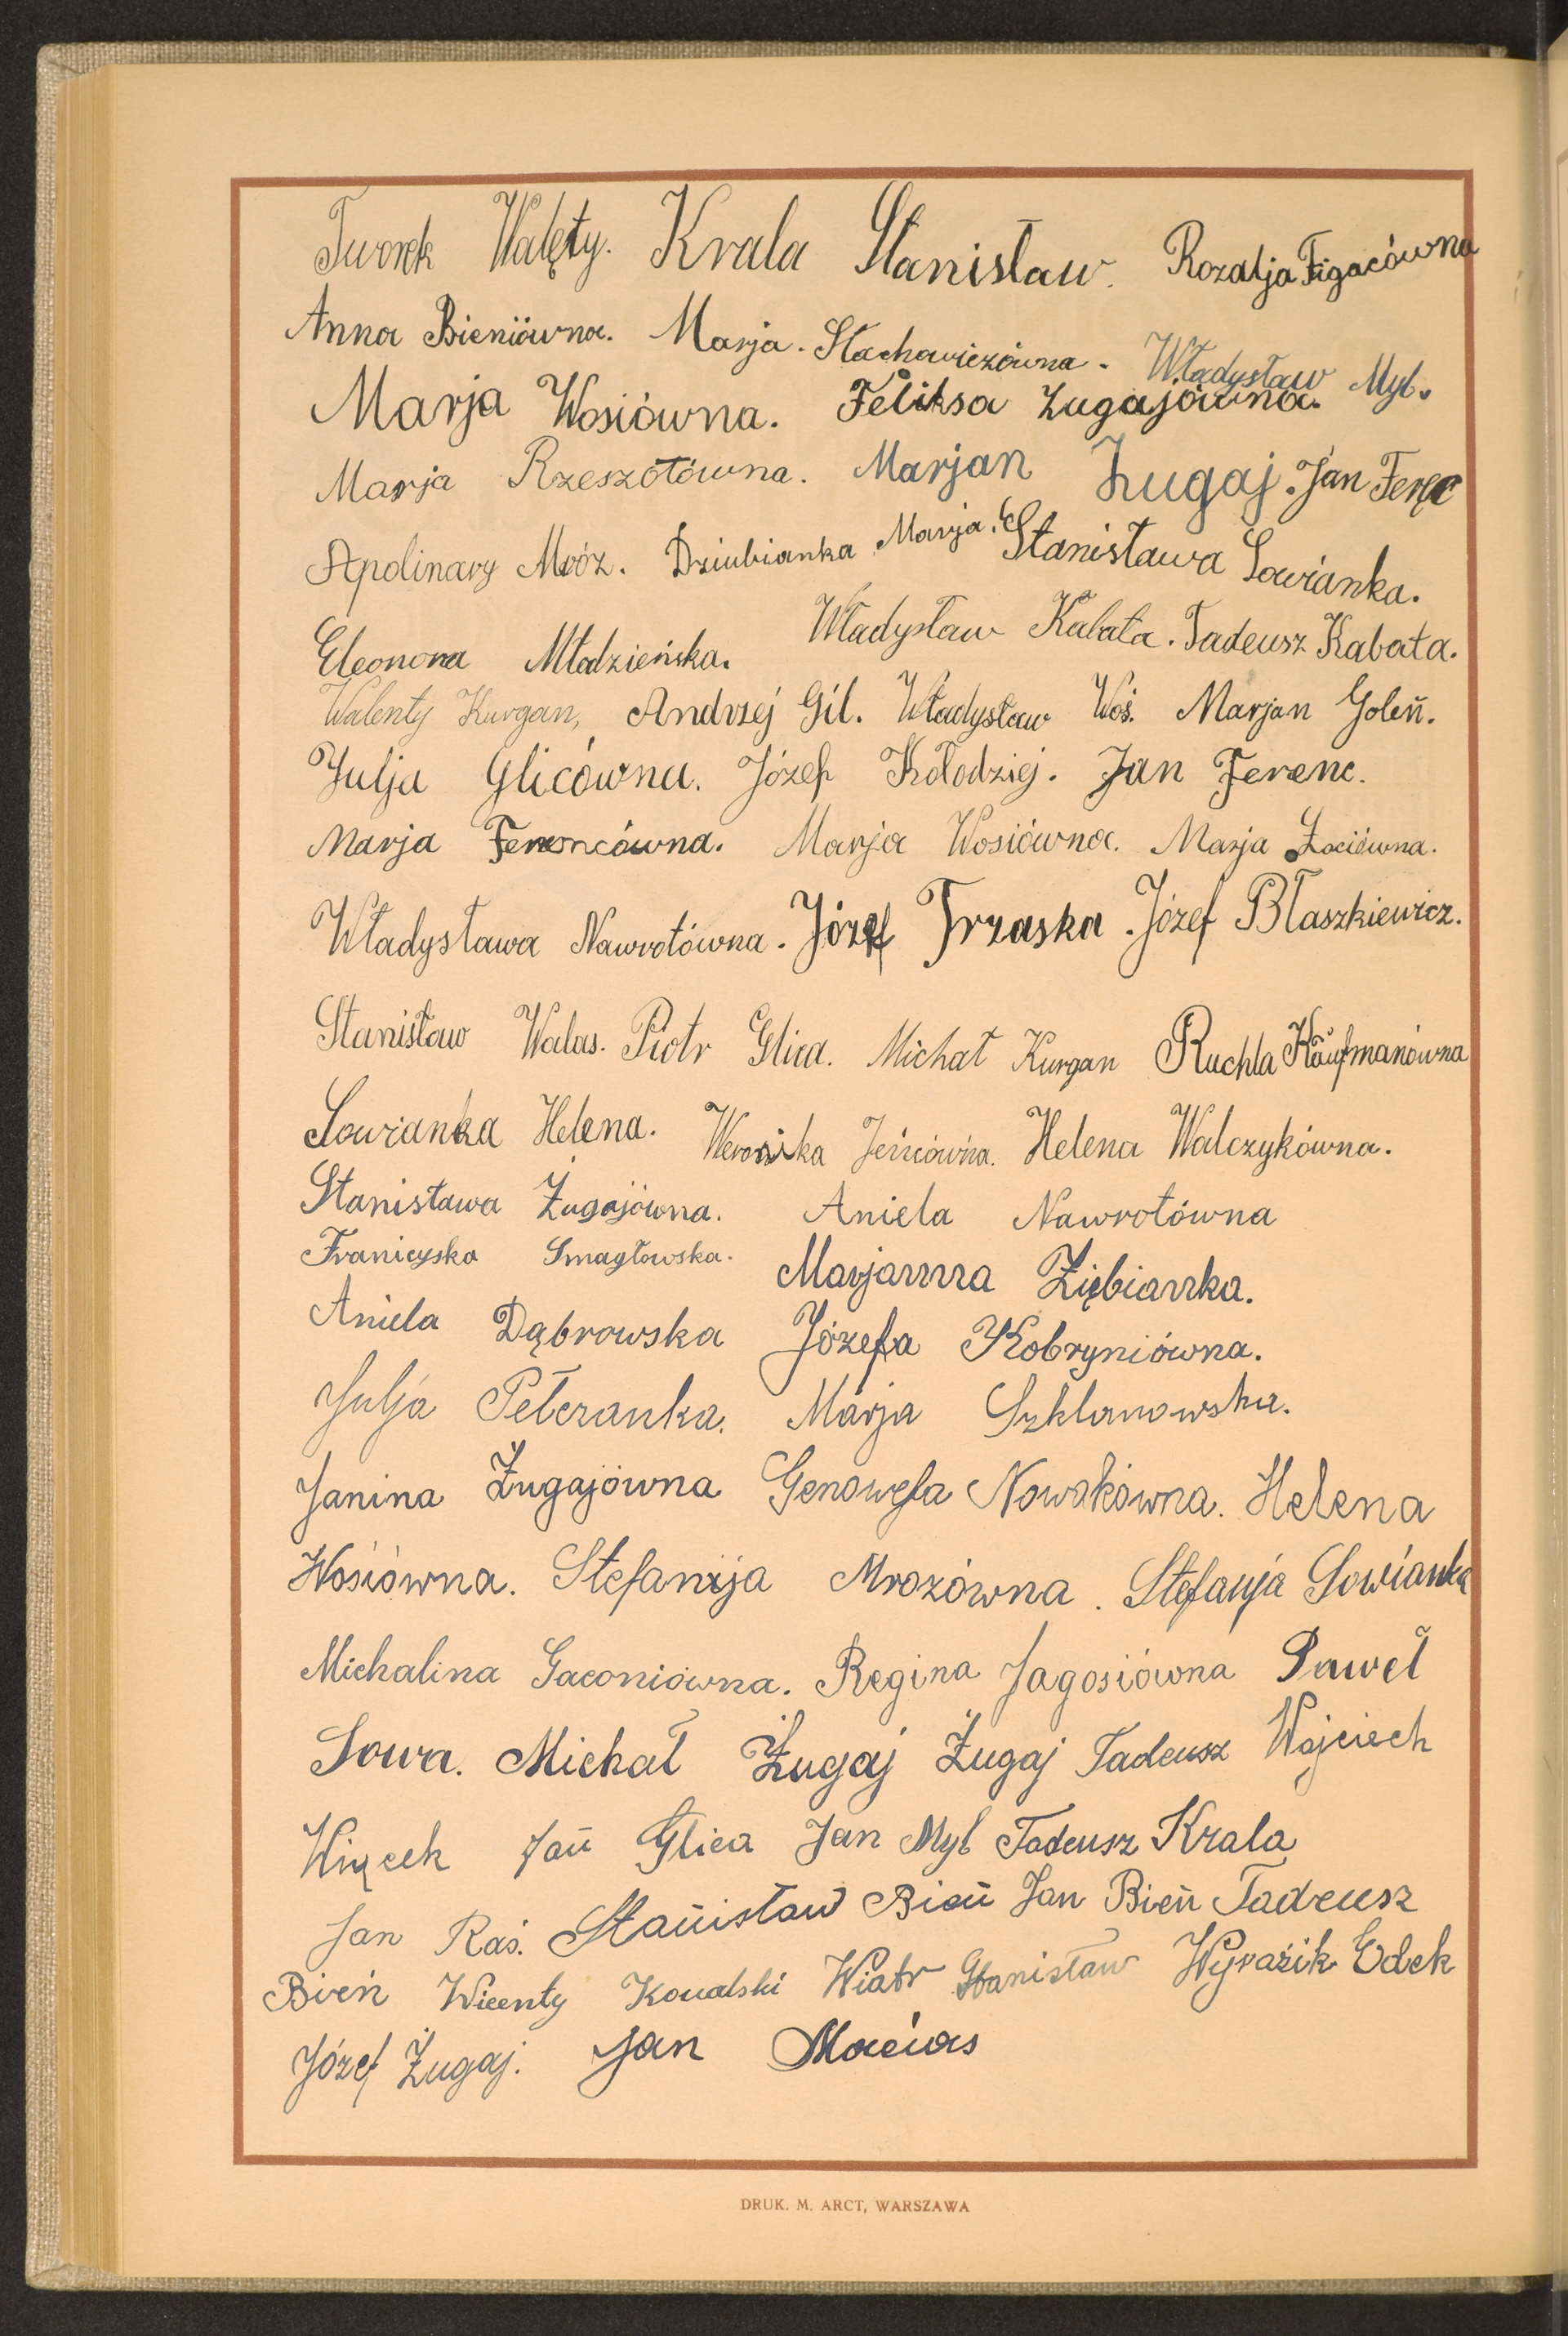 Tworek Walęty. Krala Stanisław. Rozalja Figacówna
Anna Bieniówna. Marja Stachowiczówna. Władysław Myl.
Marja Wosiówna. Feliksa Żugajówna.
Marja Rzeszotówna. Marjan Żugaj. Jan Feręc
Apolinary Mróz. Dziubianka Marja. Stanisława Sowianka.
Eleonora Młodzieńska. Władysław Kabata. Tadeusz Kabata.
Walenty Kurgan, Andrzej Gil. Władysław Woś. Marjan Goleń.
Julja Glicówna. Józef Kołodziej. Jan Ferenc.
Marja Ferencówna. Marja Wosiówna. Marja
Władysława Nawrotówna. Józef Trzaska. Józef Błaszkiewicz.
Stanisław Walas. Piotr Glica. Michał Kurgan Ruchla Kaufmanówna
Sowianka Helena. Weronika Helena Walczykówna.
Stanisława Żugajówna. Aniela Nawrotówna
Franicyska Smagłowska. Marjanna Ziębianka.
Aniela Dąbrowska Józefa Kobryniówna.
Julja Petcranka. Marja Szklanowska.
Janina Żugajówna Genowefa Nowakówna. Helena
Wośiówna. Stefanija Mrozówna. Stefanja Sowianka
Michalina Gaconiówna. Regina Jagosiówna Paweł
Sowa. Michał Żugaj Żugaj Tadeusz Wojciech
Więcek Jan Glica Jan Myl Tadeusz Krala
Jan Raś. Stanisław Bień Jan Bień Tadeusz
Bień Wicenty Kowalski Wiatr Stanisław Wyraźik Edek
Józef Żugaj. Jan Macias
DRUK. M. ARCT, WARSZAWA